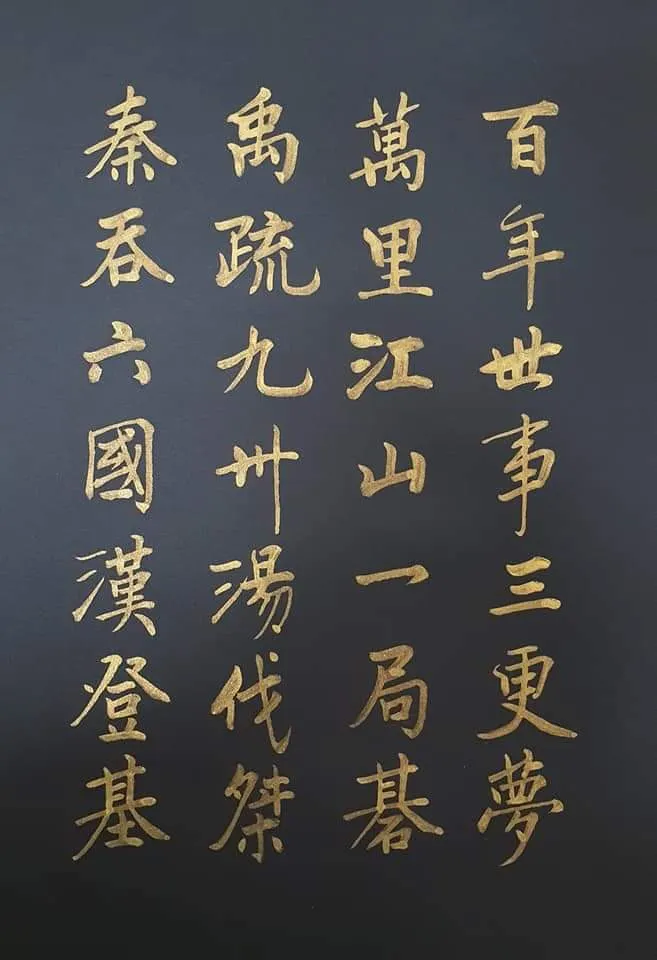 百年世事三更夢
萬里江山一局碁
禹疏九州湯伐桀
秦吞六國漢登基